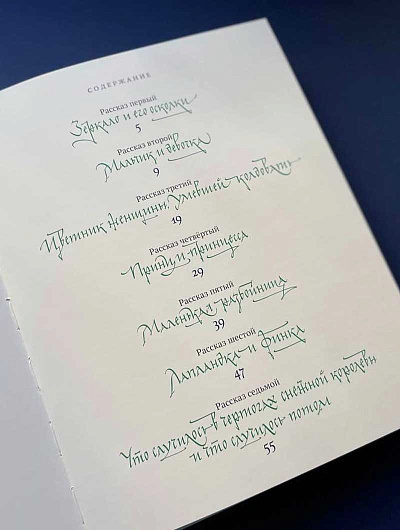 СОДЕРЖАНИЕ
Рассказ первый
Зеркало и его осколки
5
Рассказ второй
Мальчик и девочка
9
Рассказ третий
Цветник женщины, умевшей колдовать
19
Рассказ четвёртый
Принц и принцесса
29
Рассказ пятый
Маленькая разбойница
39
Рассказ шестой
Лапландка и финка
47
Рассказ седьмой
Что случилось в чертогах снежной королевы
и что случилось потом
55